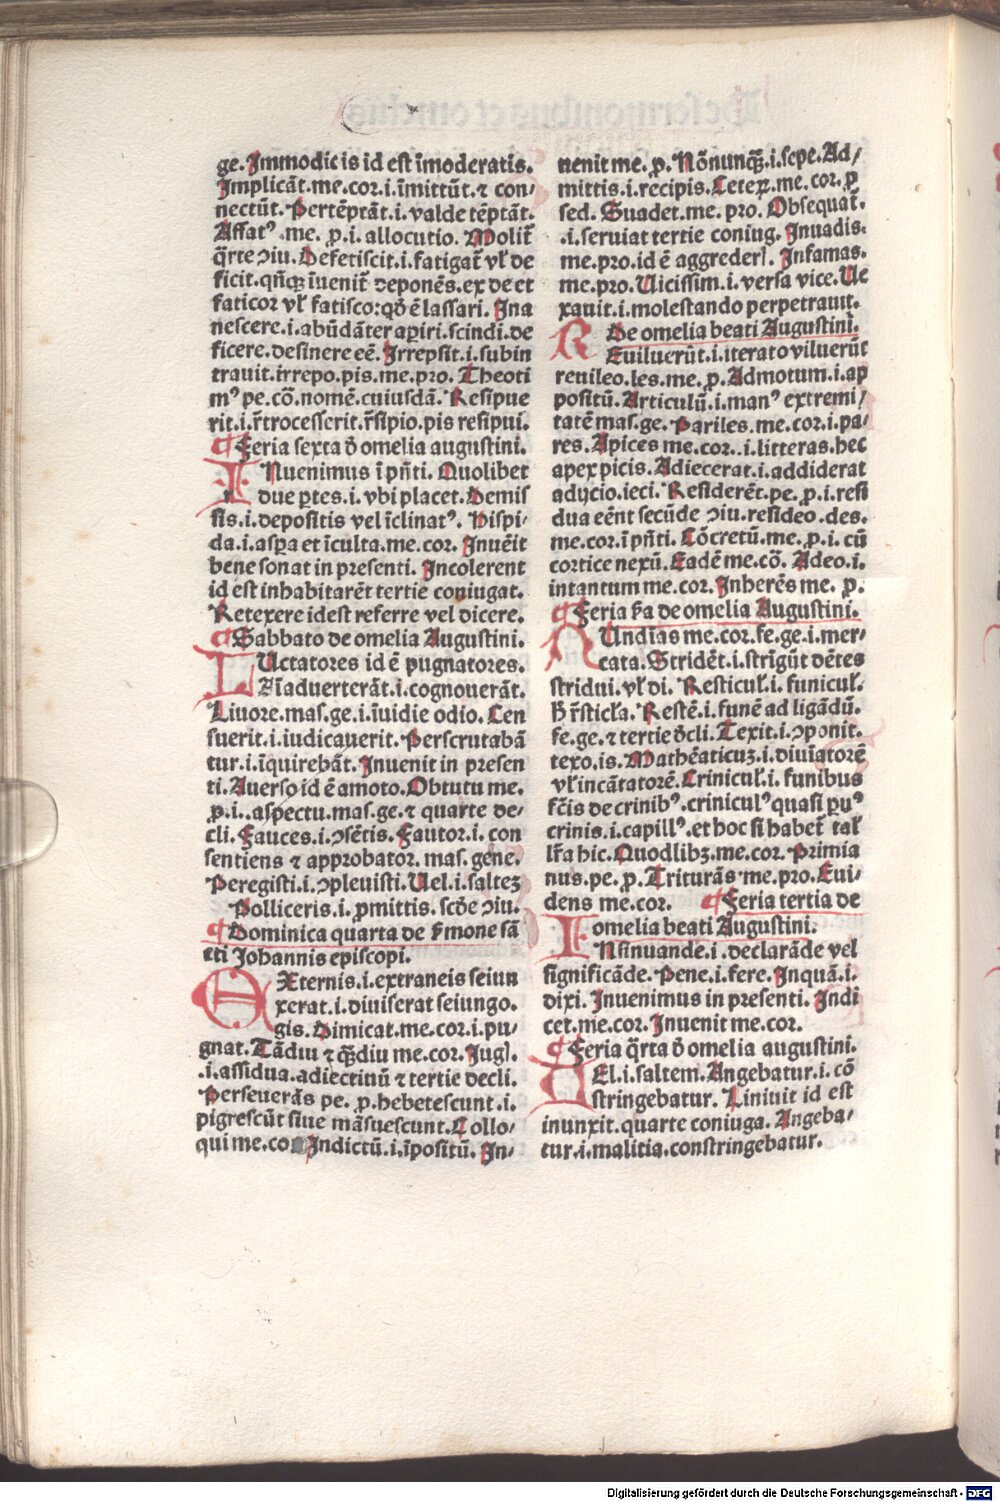 ge. Immodicis id est īmoderatis.
Implicāt.me.cor.i.īmittūt.⁊ con/
nectūt. Pertēptāt.i.valde tēptāt.
Affatꝰ.me. ꝓ.i.allocutio. Molit᷑
q̄rte ↄiu. Defetiscit.i.fatigat᷑ vl̓ de
ficit.qn̄qꝫ īuenit᷑ deponēs.ex de et
faticor vl̓ fatisco:qd̓ ē lassari. Ina
nescere.i.abūdāter aꝑiri.scindi.de
ficere.desinere eē. Irrepsit.i.subin
trauit.irrepo.pis.me.pro. Theoti
mꝰ pe.cō.nomē.cuiusdā. Resipue
rit.i.r̄trocesserit.r̄sipio.pis resipui.
¶ Feria sexta d̄ omelia augustini.
INuenimus ī pn̄ti. Quolibet
due ꝑtes.i.vbi placet. Demis
sis.i.depositis vel īclinatꝰ. Hispi/
da.i.asꝑa et īculta.me.cor. Inuēit
bene sonat in presenti. Incolerent
id est inhabitarēt tertie coniugat.
Retexere idest referre vel dicere.
¶ Sabbato de omelia Augustini.
LUctatores id ē pugnatores.
Aīaduerterāt.i.cognouerāt.
Liuore.mas.ge.i.īuidie odio. Cen
suerit.i.iudicauerit. Perscrutabā
tur.i.īquirebāt. Inuenit in presen
ti. Auerso id ē amoto. Obtutu me.
ꝓ.i..aspectu.mas.ge.⁊ quarte de/
cli. Fauces.i.ↄsētis. Fautor.i.con
sentiens ⁊ approbator.mas.gene.
Peregisti.i.ↄpleuisti. Uel.i.salteꝫ
Polliceris.i.ꝓmittis.scd̄e ↄiu.
¶ Dominica quarta de s̄mone sā
cti Johannis episcopi.
EXternis.i.extraneis seiun
xerat.i.diuiserat seiungo.
gis. Dimicat.me.cor.i.pu/
gnat. Tādiu ⁊ qȝ̄diu me.cor. Jugl̓.
.i.assidua.adiectiuū ⁊ tertie decli.
Perseuerās pe. ꝓ.hebetescunt.i.
pigrescūt siue māsuescunt. Collo/
qui me.co Indictū.i.īpositū. In/
uenit me. ꝓ. Nōnunqȝ̄.i.sepe. Ad/
mittis.i.recipis. Ceteꝝ.me.cor. ꝓ
sed. Suadet.me. pro. Obsequat᷑.
.i.seruiat tertie coniug. Inuadis.
me.pro.id ē aggrederl̓. Infamas.
me.pro. Uicissim.i.versa vice. Ue
xauit.i.molestando perpetrauit.
De omelia beati Augustini.
REuiluerūt.i.iterato viluerūt
reuileo.les.me. ꝓ. Admotum.i.ap
positū. Articulū.i.manꝰ extremi/
tatē mas.ge. Pariles.me.cor.i.pa/
res. Apices me.cor..i.litteras.hec
apex picis. Adiecerat.i.addiderat
adijcio.ieci. Residerēt.pe. ꝓ.i.resi
dua eēnt secūde ↄiu.resideo.des.
me.cor.ī pn̄ti. Cōcretū.me. ꝓ.i. cū
cortice nexū. Eadē me.cō. Adeo.i.
intantum me.cor. Inherēs me. ꝓ.
¶ Feria s̄a de omelia Augustini.
NUndīas me.cor.fe.ge.i.mer/
cata. Stridēt.i.strīgūt dētes
stridui.vl̓ di. Resticul̓.i.funicul̓.
h̄ r̄sticl̓a. Restē.i.funē ad ligādū.
fe.ge.⁊ tertie d̄cli. Texit.i.ↄponit.
texo.is. Mathēaticuꝫ.i.diuīatorē
vl̓ incātatorē. Crinicul̓.i. funibus
fc̄is de crinibꝰ.criniculꝰ quasi ꝑuꝰ
crinis.i.capillꝰ.et hoc si habet᷑ tal̓
lr̄a hic. Quodlibꝫ.me.cor. Primia
nus.pe. ꝓ. Triturās me.pro. Eui/
dens me.cor. ¶ Feria tertia de
omelia beati Augustini.
INsinuande.i.declarāde vel
significāde. Pene.i.fere. Inquā.i.
dixi. Inuenimus in presenti. Indi
cet.me.cor. Inuenit me.cor.
¶ Feria q̄rta d̄ omelia augustini.
UEl.i.saltem. Angebatur.i.cō
stringebatur. Liniuit id est
inunxit.quarte coniuga. Angeba/
tur.i.malitia.constringebatur.
Digitalisierung gefördert durch die Deutsche Forschungsgemeinschaft - DFG